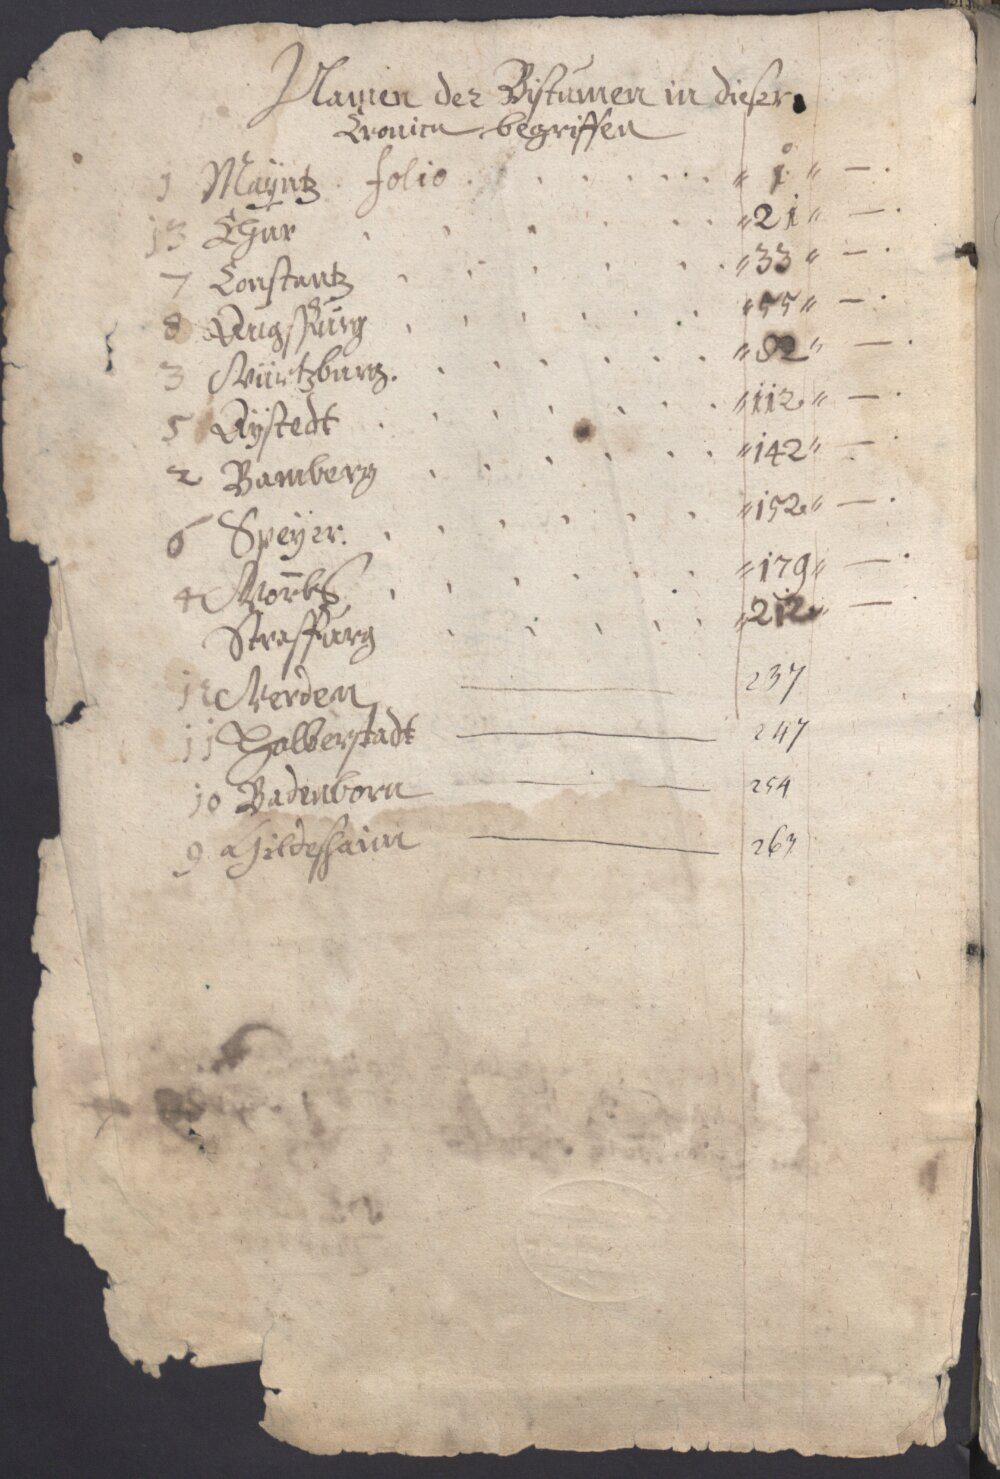 Namen der Bistumen in dieser
Cronicn begriffen
1 Mayntz . folio . . . . . . . " 1 " — .
13 Chur . . . . . . . " 21 " — .
7 Constantz . . . . . . " 33 " — .
8 Augspurg . . . . . . " 55 " — .
3 Würtzburg . . . . . . " 82 " — .
5 Aystedt . . . . . . " 112 " — .
2 Bamberg . . . . . . " 142 " — .
6 Speyer . . . . . . " 152 " — .
4 Wormbs . . . . . . " 179 " — .
Strassburg . . . . . " 212 " — .
12 Verden — 237
11 Halberstadt — 247
10 Badenborn — 254
9 Hildeshaim — 263